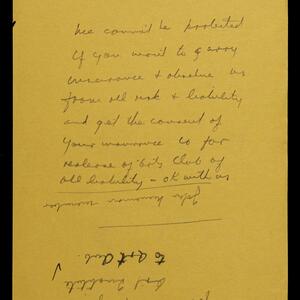 We cannot be protected
If you want to carry
insurance & absolve us
from all risk & liability
and get the consent of
your insurance co for
release of Arts Club of
all liability - OK with us
to Art Club.